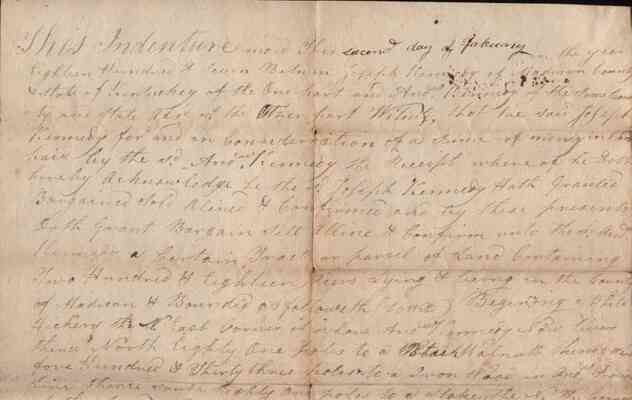 This Indenture made This second day of January in the year
Eighteen Hundred & Between Joseph Kennedy of Madison County
& State of Kentuckey of the One part and Andw Kennedy of the Same County
& State of the Other part Witness, that the said Joseph
Kennedy for and in Consideration of a Sume of money in hand
paid by the sd Andw Kennedy the Receipt where of he Doth
hereby Acknowledge he the sd Joseph Kennedy Hath Granted
Bargained Sold Aliened & Confirmed and by these presents
Doth Grant Bargain Sell Aliene & Confirm unto the sd Andw
Kennedy a Certain Tract or parcel of Land Containing
Two Hundred & Eighteen Acres Lying & being in the County
of Madison & Bounded as followeth (towit) Begining a White
Hickery the N East Corner of where Andw Kennedy Now Lives
thence North Eighty One poles to a Black Walnutt Thence
five Hundred & Thirty three poles to a Iron Wood in Andw
line thence Eighty One poles to a Stake the